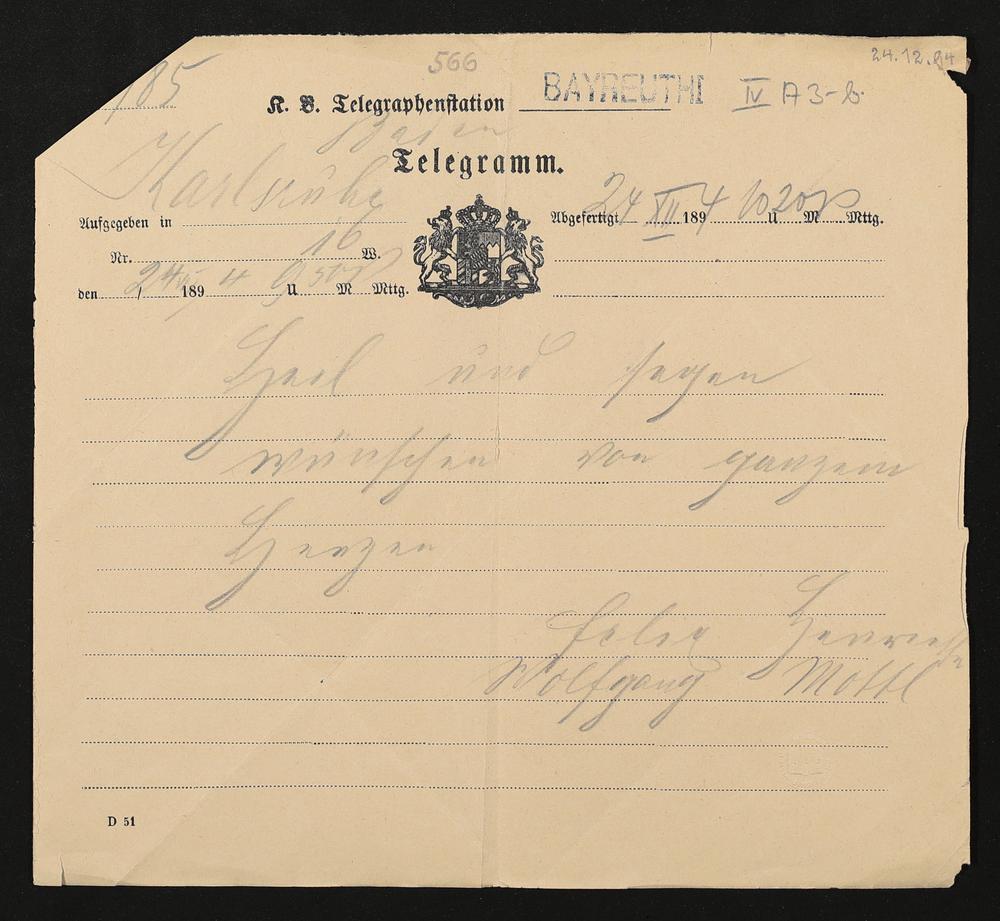 24.12.94
566
185
K. B. Telegraphenstation BAYREUTH I IV A 3-6.
Baden
Telegramm.
Karlsruhe
Aufgegeben in
Abgefertigt 24 XII 1894 10 20 U. M. Mttg.
Nr. 16 W.
den 24/ 1894 9 50 U M Mttg.
Heil und segen
wünschen von ganzem
Herzen
Felix Henriette
Wolfgang Mottl
D 51